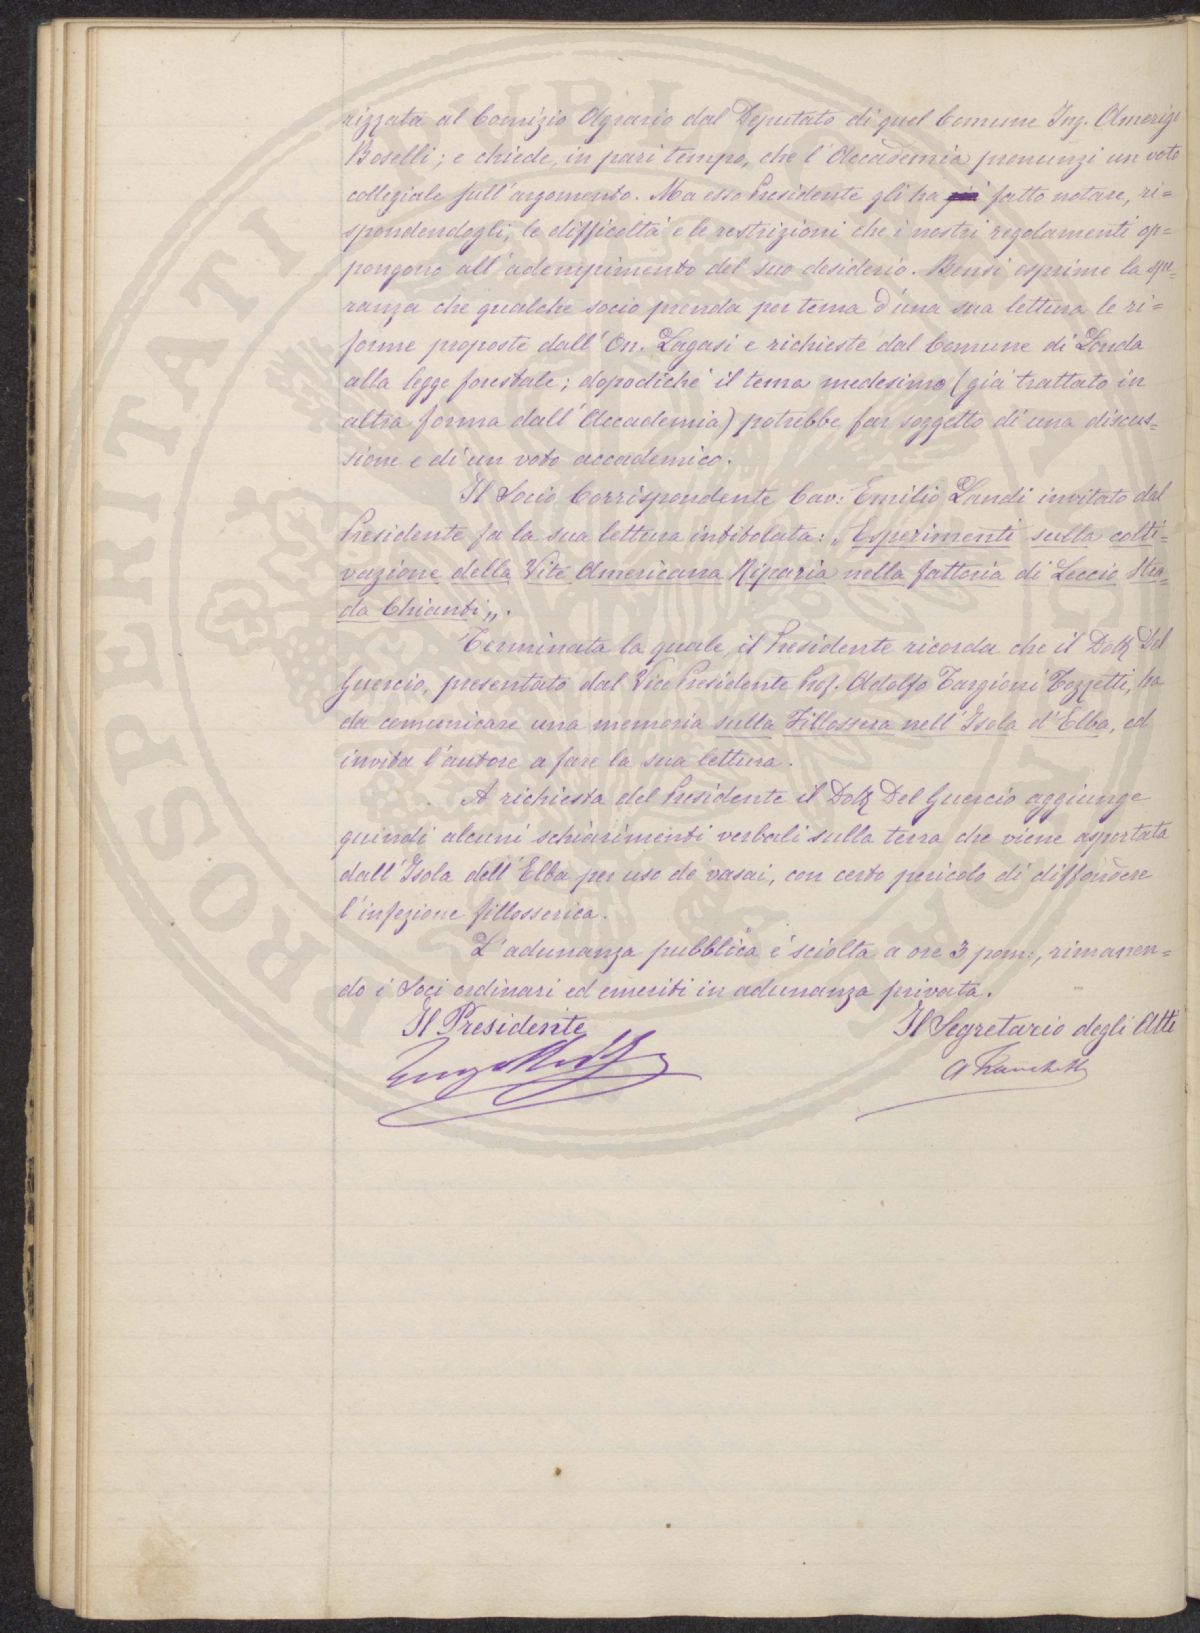 rizzata al Comizio Agrario dal Deputato di quel Comune Ing. Amerigo
Boselli; e chiede, in pari tempo, che l'Accademia pronunzi un voto
collegiale sull'argomento. Ma esso Presidente gli ha già fatto notare, ri=
spondendogli, le difficoltà e le restrizioni che i nostri regolamenti op=
pongono all'adempimento del suo desiderio. Bensì esprime la spe=
ranza che qualche socio prenda per tema d'una sua lettura le ri=
forme proposte dall'On. Lagasi e richieste dal Comune di Londa
alla legge forestale; dopodichè il tema medesimo (già trattato in
altra forma dall'Accademia) potrebbe far soggetto di una discus=
sione e di un voto accademico.
Il Socio Corrispondente Cav: Emilio Landi invitato dal
Presidente fa la sua lettura intitolata: „Esperimenti sulla colti=
vazione della Vite Americana Riparia nella fattoria di Leccio Stra=
da Chianti„.
Terminata la quale, il Presidente ricorda che il Dott Del
Guercio, presentato dal Vice Presidente Prof. Adolfo Targioni Tozzetti, ha
da comunicare una memoria sulla Fillossera nell'Isola d'Elba, ed
invita l'autore a fare la sua lettura.
A richiesta del Presidente il Dott Del Guercio aggiunge
quindi alcuni schiarimenti verbali sulla terra che viene asportata
dall'Isola dell'Elba per uso de' vasai, con certo pericolo di diffondere
l'infezione fillosserica.
L'adunanza pubblica è sciolta a ore 3 pom:, rimanen=
do i Soci ordinari ed emeriti in adunanza privata.
Il Presidente
Il Segretario degli Atti
PROSPERITATI PUBLICAE AUGENDAE